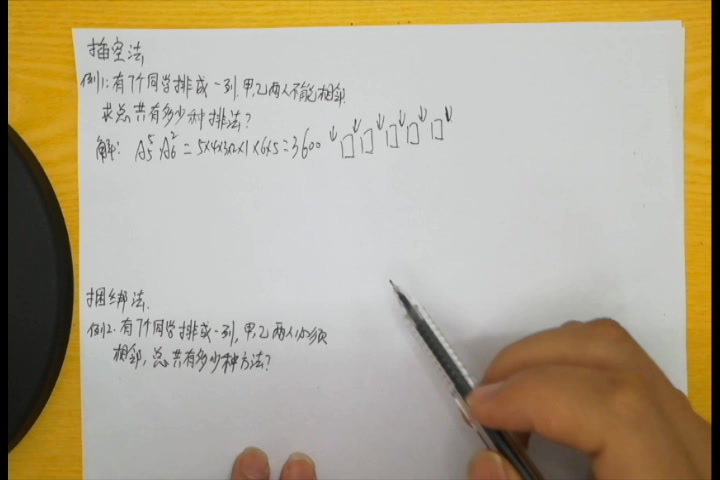 插空法
例1:有7个同学排成一列,甲,乙两人不能相邻.
求总共有多少种排法?
解: A₅⁵·A₆² = 5×4×3×2×1×6×5=3600
捆绑法.
例2.有7个同学排成一列,甲,乙两人必须
相邻,总共有多少种方法?